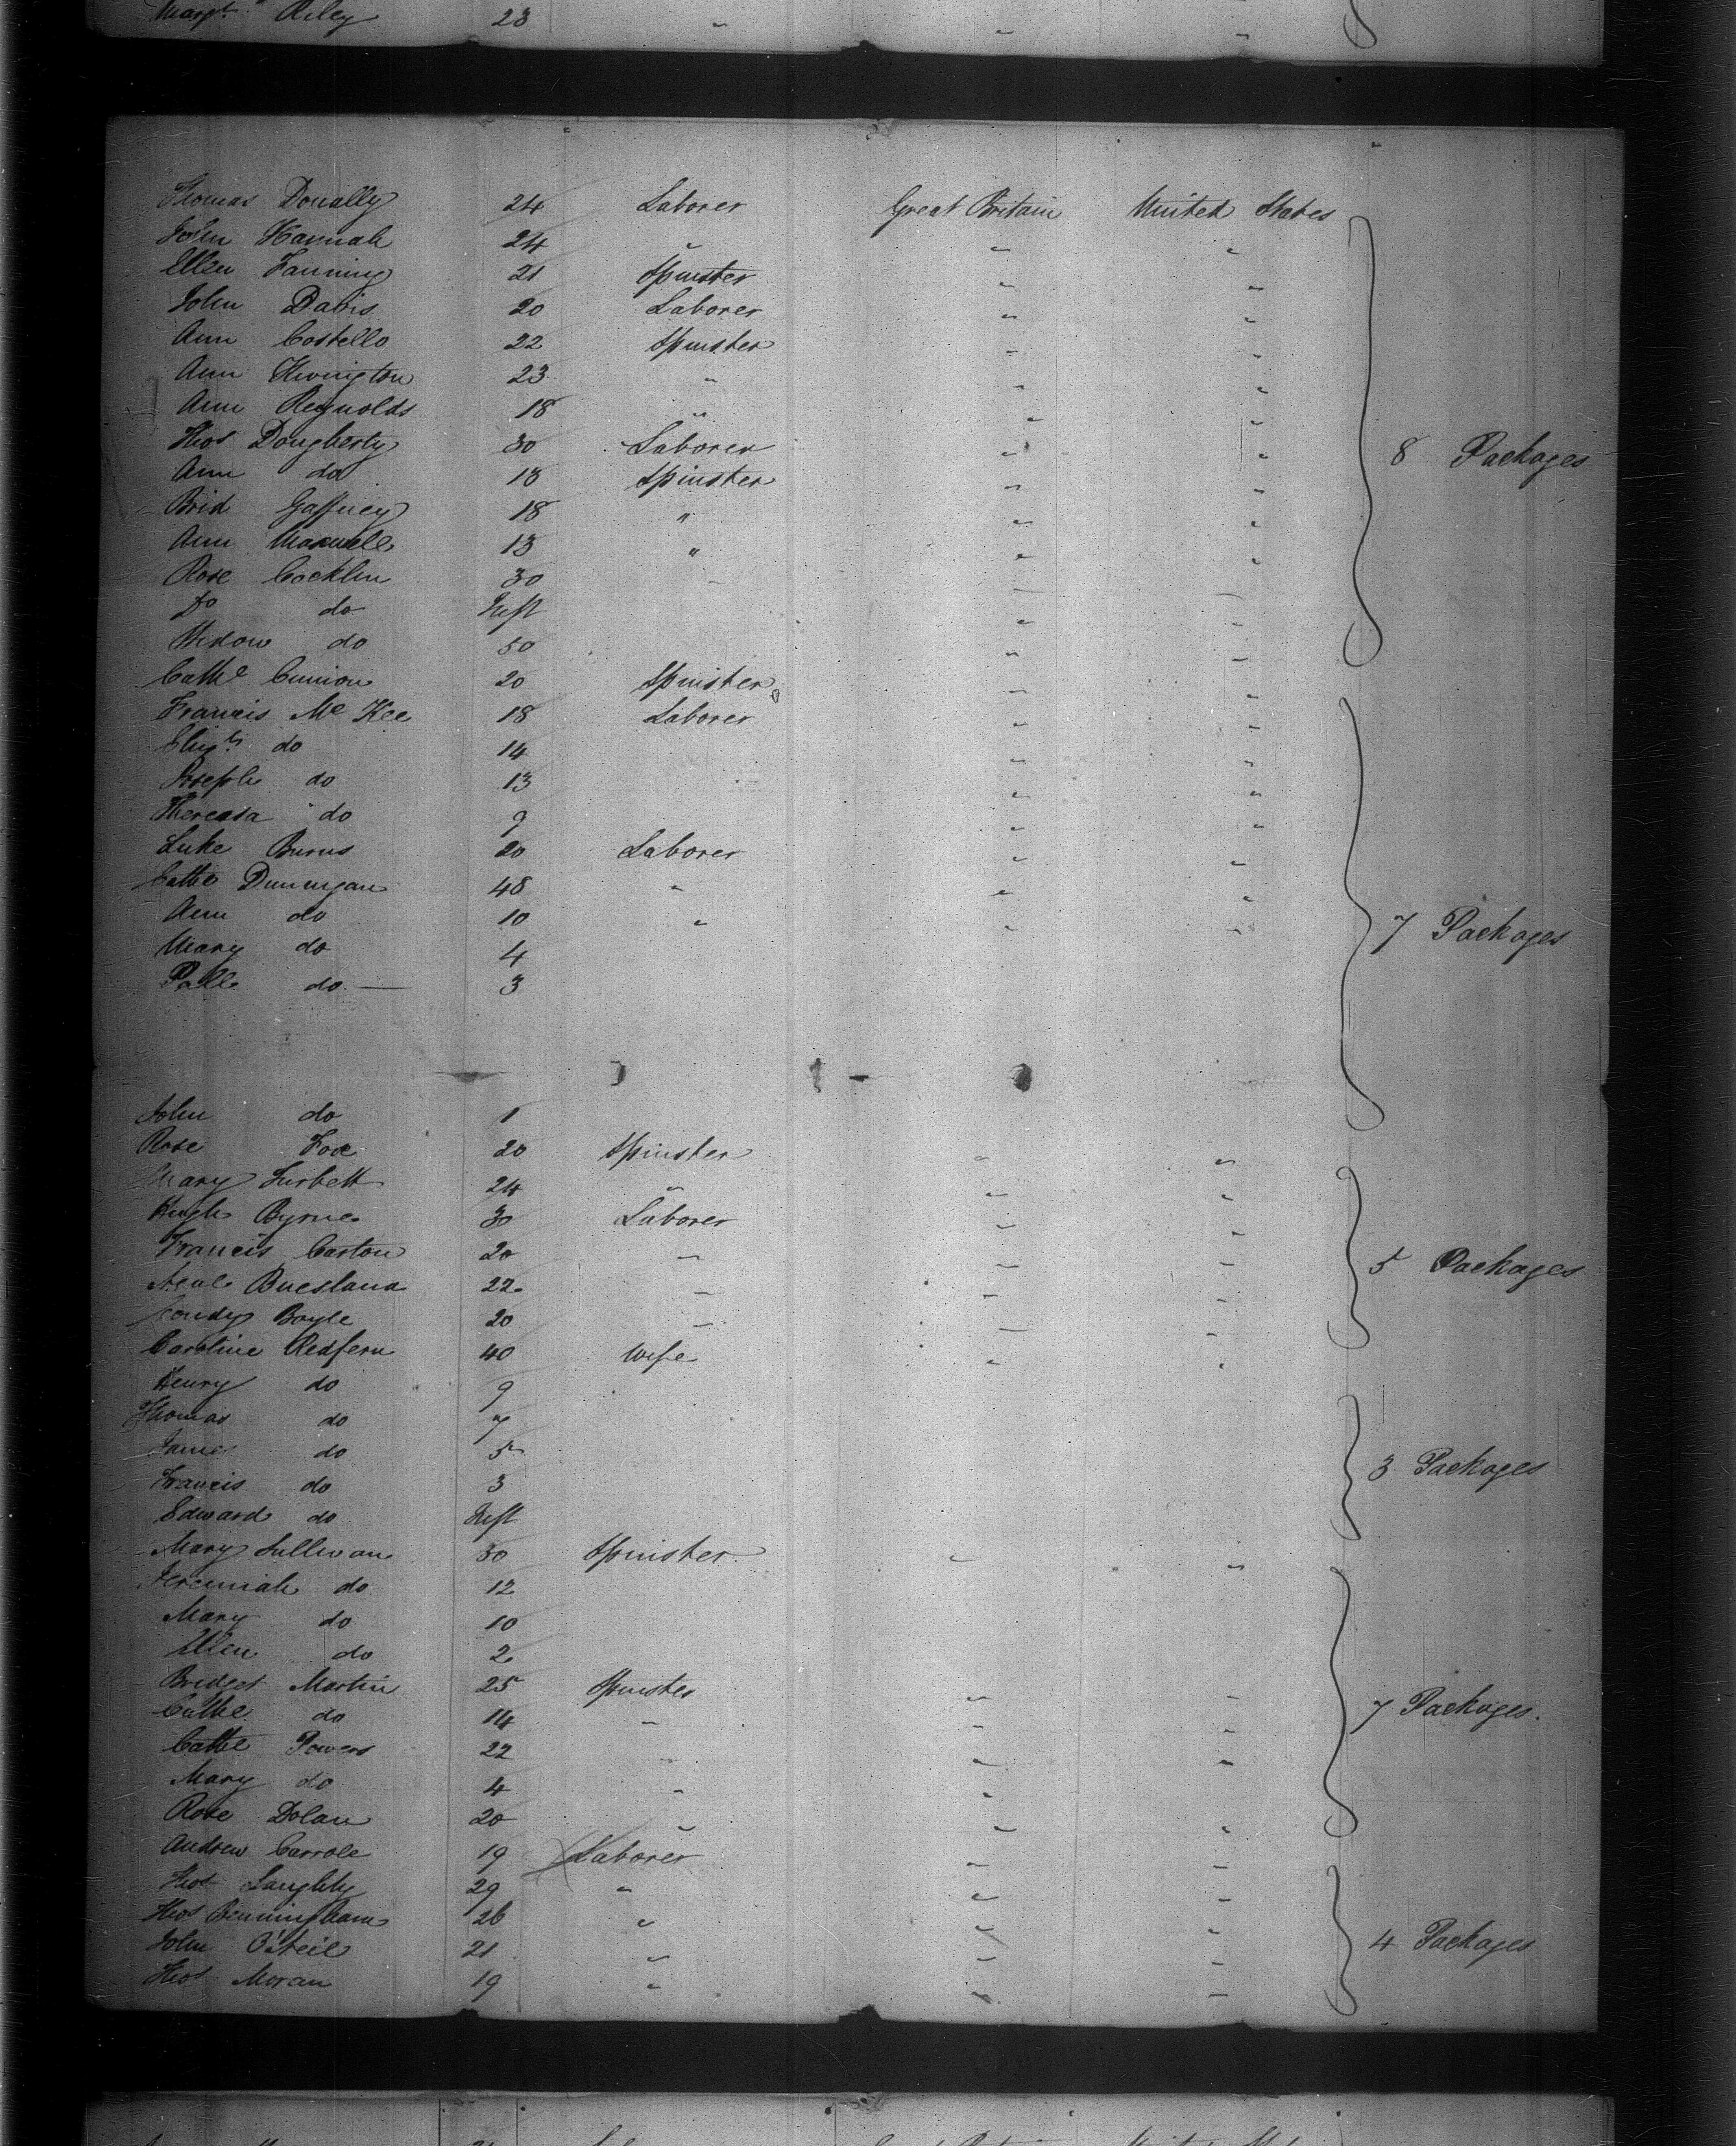 Margt Riley 23 " " "
Thomas Donally 24 Laborer Great Britain United States
John Hannah 24 " " "
Ellen Fanning 21 Spinster " "
John Davis 20 Laborer " "
Ann Costello 22 Spinster " "
Ann 23 " " "
Ann Reynolds 18 " " "
Thos Dougherty 30 Laborer " "
8 Packages
Ann do 18 Spinster " "
Brid Gaffney 18 " " "
Ann Maxwell 13 " " "
Rose Cocklin 30 " " "
Do do Inft " "
Widow do 50 " "
Cathe 20 Spinster " "
Francis Mc Kee 18 Laborer " "
Elizth do 14 " "
Joseph do 13 " "
Thereasa do 9 " "
Luke Burns 20 Laborer " "
Cathe Dunnigan 48 " " "
Ann do 10 " " "
7 Packages
Mary do 4
do — 3
John do 1
Rose Fox 20 Spinster " "
Mary 24 " " "
Hugh Byrne 30 Laborer " "
Francis Carton 20 " " "
5 Packages
Neale 22 " " "
Boyle 20 " " "
Caroline Redfern 40 Wife " "
Henry do 9
Thomas do 7
James do 5
3 Packages
Francis do 3
Edward do Inft
Mary Sullivan 30 Spinster " "
Jeremiah do 12
Mary do 10
Ellen do 2
Bridget Martin 25 Spinster " "
Cathe do 14 " " "
7 Packages.
Cathe Powers 22 " "
Mary do 4 " "
Rose Dolan 20 " " "
Andrew Carrole 19 Laborer " "
Thos 29 " " "
Thos 26 " " "
John O'Neil 21 " " "
4 Packages
Thos Moran 19 " " "